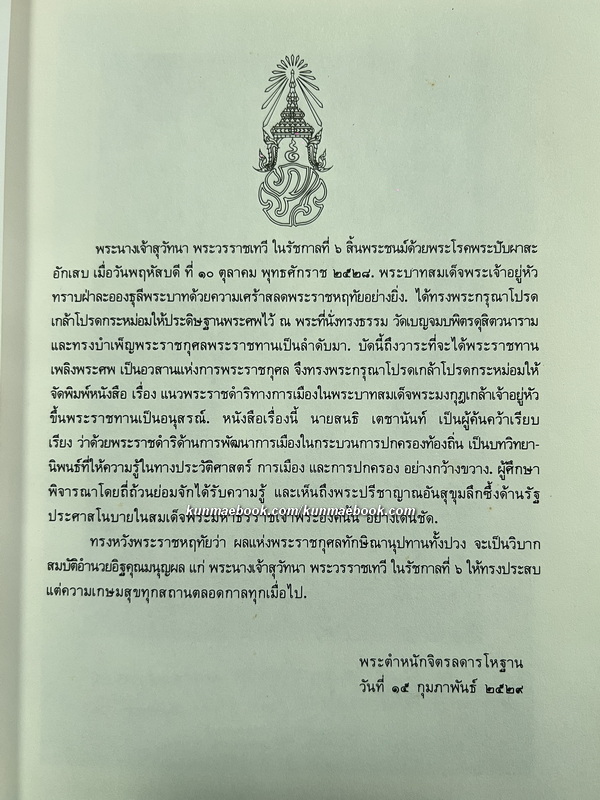 พระนางเจ้าสุวัทนา พระวรราชเทวี ในรัชกาลที่ ๖ สิ้นพระชนม์ด้วยพระโรคพระปัปผาสะ
อักเสบ เมื่อวันพฤหัสบดี ที่ ๑๐ ตุลาคม พุทธศักราช ๒๕๒๘. พระบาทสมเด็จพระเจ้าอยู่หัว
ทราบฝ่าละอองธุลีพระบาทด้วยความเศร้าสลดพระราชหฤทัยอย่างยิ่ง. ได้ทรงพระกรุณาโปรด
เกล้าโปรดกระหม่อมให้ประดิษฐานพระศพไว้ ณ พระที่นั่งทรงธรรม วัดเบญจมบพิตรดุสิตวนาราม
และทรงบำเพ็ญพระราชกุศลพระราชทานเป็นลำดับมา. บัดนี้ถึงวาระที่จะได้พระราชทาน
เพลิงพระศพ เป็นอวสานแห่งการพระราชกุศล จึงทรงพระกรุณาโปรดเกล้าโปรดกระหม่อมให้
จัดพิมพ์หนังสือ เรื่อง แนวพระราชดำริทางการเมืองในพระบาทสมเด็จพระมงกุฎเกล้าเจ้าอยู่หัว
ขึ้นพระราชทานเป็นอนุสรณ์. หนังสือเรื่องนี้ นายสนธิ เตชานันท์ เป็นผู้ค้นคว้าเรียบ
เรียง ว่าด้วยพระราชดำริด้านการพัฒนาการเมืองในกระบวนการปกครองท้องถิ่น เป็นบทวิทยา-
นิพนธ์ที่ให้ความรู้ในทางประวัติศาสตร์ การเมือง และการปกครอง อย่างกว้างขวาง. ผู้ศึกษา
พิจารณาโดยถี่ถ้วนย่อมจักได้รับความรู้ และเห็นถึงพระปรีชาญาณอันสุขุมลึกซึ้งด้านรัฐ
ประศาสโนบายในสมเด็จพระมหาธีรราชเจ้าพระองค์นั้น อย่างเด่นชัด.
kunmaebook.com/kunmaebook.com
ทรงหวังพระราชหฤทัยว่า ผลแห่งพระราชกุศลทักษิณานุปทานทั้งปวง จะเป็นวิบาก
สมบัติอำนวยอิฐคุณมนุญผล แก่ พระนางเจ้าสุวัทนา พระวรราชเทวี ในรัชกาลที่ ๖ ให้ทรงประสบ
แต่ความเกษมสุขทุกสถานตลอดกาลทุกเมื่อไป.
พระตำหนักจิตรลดารโหฐาน
วันที่ ๑๕ กุมภาพันธ์ ๒๕๒๙